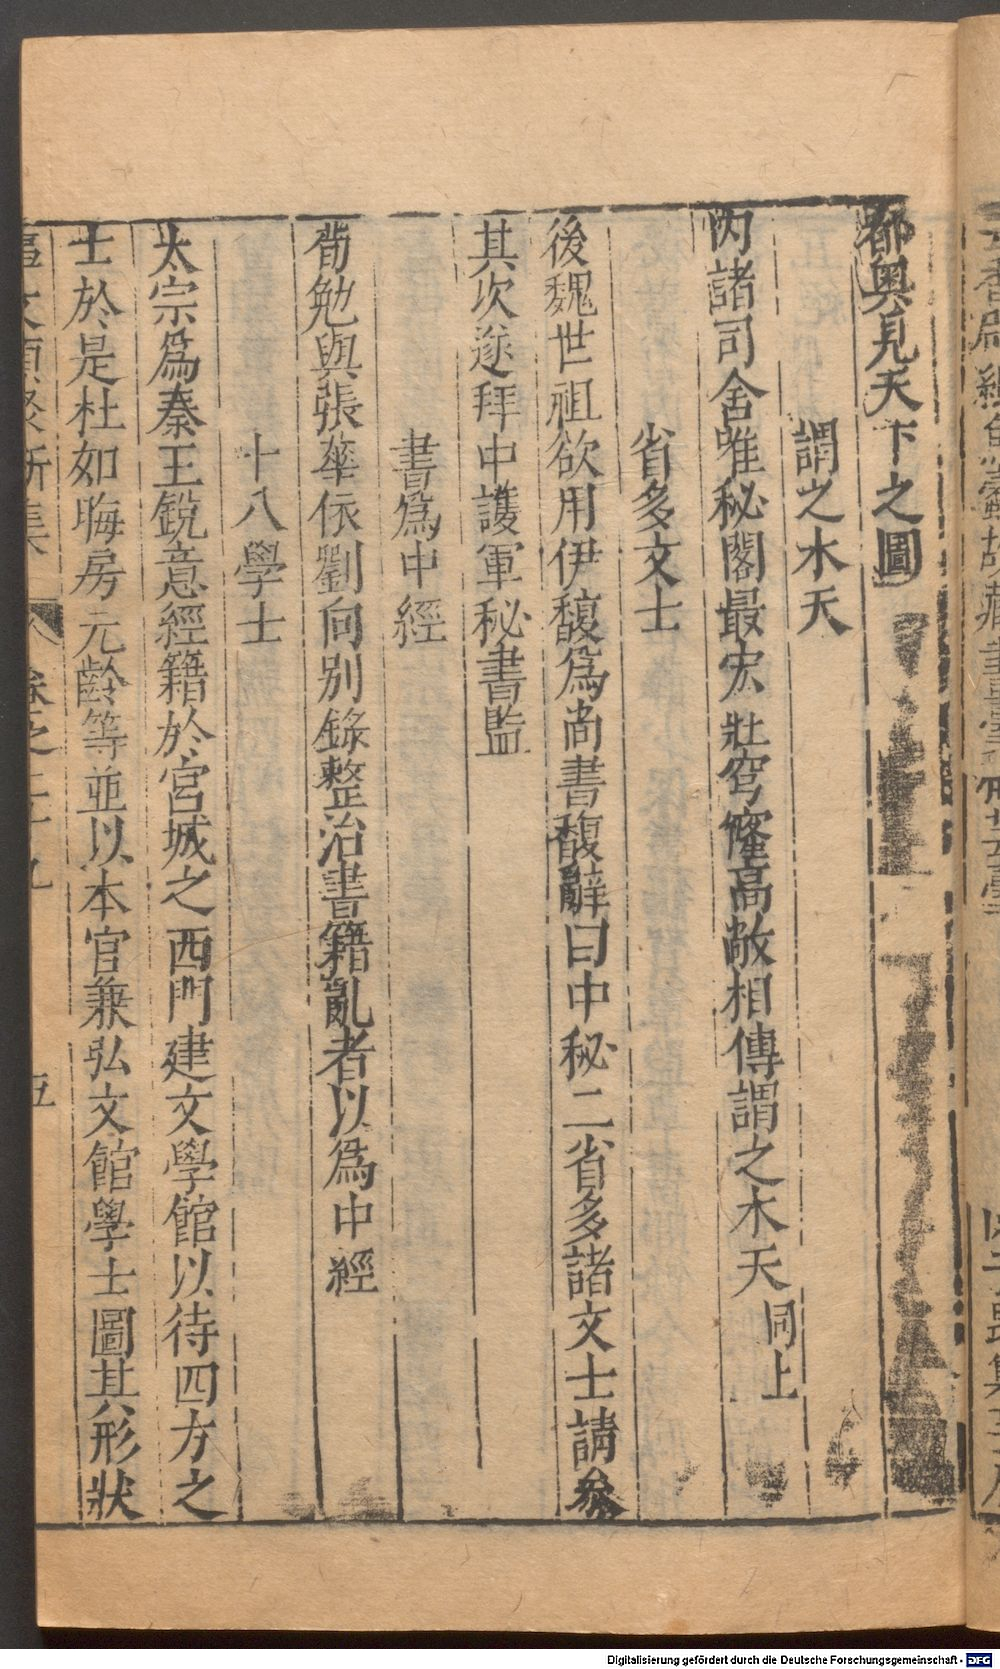 都奧見天下之圖
謂之木天
内諸司舍唯秘閣最宏壯穹窿高敞相傳謂之木天同上
省多文士
後魏世祖欲用伊馥爲尚書馥辭曰中秘二省多諸文士請叅
其次遂拜中護軍秘書監
書爲中經
荀勉與張華依劉向别錄整治書籍亂者以爲中經
十八學士
太宗爲秦王銳意經籍於宮城之西門建文學館以待四方之
士於是杜如晦房元齡等並以本官兼弘文館學士圖其形狀
Digitalisierung gefördert durch die Deutsche Forschungsgemeinschaft - DFG